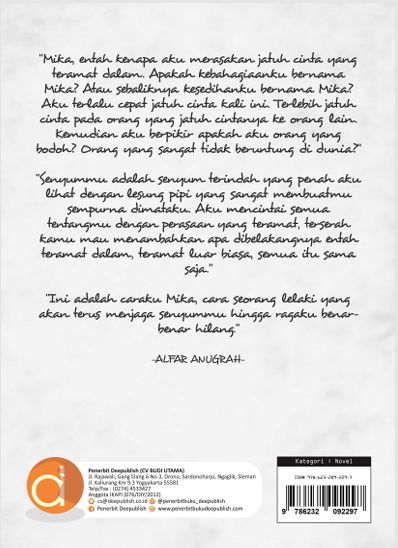 "Mika, entah kenapa aku merasakan jatuh cinta yang
teramat dalam. Apakah kebahagiaanku bernama
Mika? Atau sebaliknya kesedihanku bernama Mika?
Aku terlalu cepat jatuh cinta kali ini. Terlebih jatuh
cinta pada orang yang jatuh cintanya ke orang lain.
Kemudian aku berpikir apakah aku orang yang
bodoh? Orang yang sangat tidak beruntung di dunia?"
"Senyummu adalah senyum terindah yang penah aku
lihat dengan lesung pipi yang sangat membuatmu
sempurna dimataku. Aku mencintai semua
tentangmu dengan perasaan yang teramat, terserah
kamu mau menambahkan apa dibelakangnya entah
teramat dalam, teramat luar biasa, semua itu sama
saja."
"Ini adalah caraku Mika, cara seorang lelaki yang
akan terus menjaga senyummu hingga ragaku benar-
benar hilang."
-ALFAR ANUGRAH-
Kategori : Novel
Penerbit Deepublish (CV BUDI UTAMA)
Jl. Rajawali, Gang Elang 6 No.3, Drono, Sardonoharjo, Ngaglik, Sleman
Jl. Kaliurang Km 9,3 Yogyakarta 55581
Telp/Fax : (0274) 4533427
Anggota IKAPI (076/DIY/2012)
cs@deepublish.co.id @penerbitbuku_deepublish
Penerbit Deepublish www.penerbitbukudeepublish.com
ISBN 978-623-209-229-7
9 786232 092297